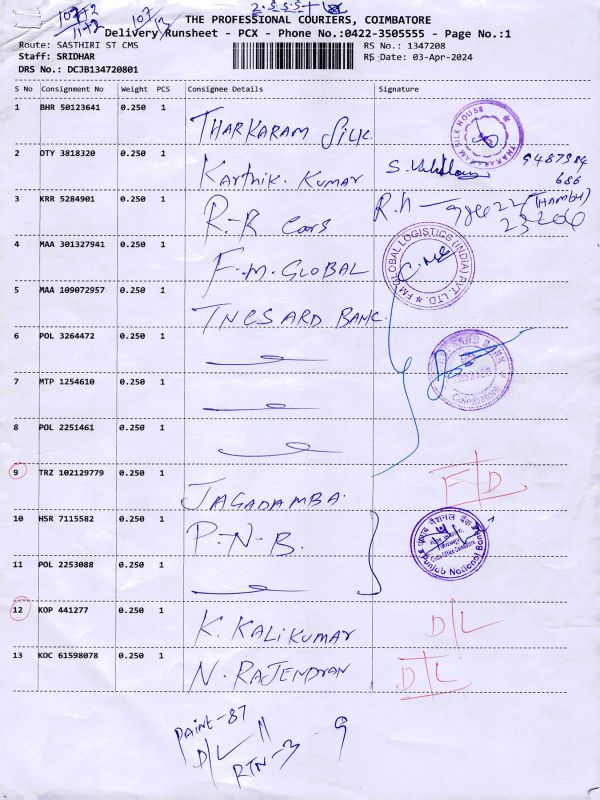 107+2
11+2
THE PROFESSIONAL COURIERS, COIMBATORE
Delivery Runsheet - PCX - Phone No.:0422-3505555 - Page No.:1
Route: SASTHIRI ST CMS
RS No.: 1347208
Staff: SRIDHAR
RS Date: 03-Apr-2024
DRS No.: DCJB134720801
S No Consignment No Weight PCS Consignee Details Signature
1 BHR 50123641 0.250 1 THARKARAM SILK.
THARAKARAM SILK HOUSE
2 DTY 3818320 0.250 1 Karthik. Kumar
9487984
686
3 KRR 5284901 0.250 1 R-R Cars
R.h - 98422 (THAMBI)
23206
4 MAA 301327941 0.250 1 F.M. GLOBAL
FM GLOBAL LOGISTICS (INDIA) PVT. LTD.
5 MAA 109072957 0.250 1 TNCSARD BANK.
6 POL 3264472 0.250 1
Coimbatore
7 MTP 1254610 0.250 1
8 POL 2251461 0.250 1
9 TRZ 102129779 0.250 1 JAGADAMBA.
10 HSR 7115582 0.250 1 P.N.B.
पंजाब नैशनल बैंक
Punjab National Bank
11 POL 2253088 0.250 1
12 KOP 441277 0.250 1 K. KALIKUMAR D/L
13 KOC 61598078 0.250 1 N. RAJENDRAN D/L
PAINT-87
D/L 11 9
RTN-3